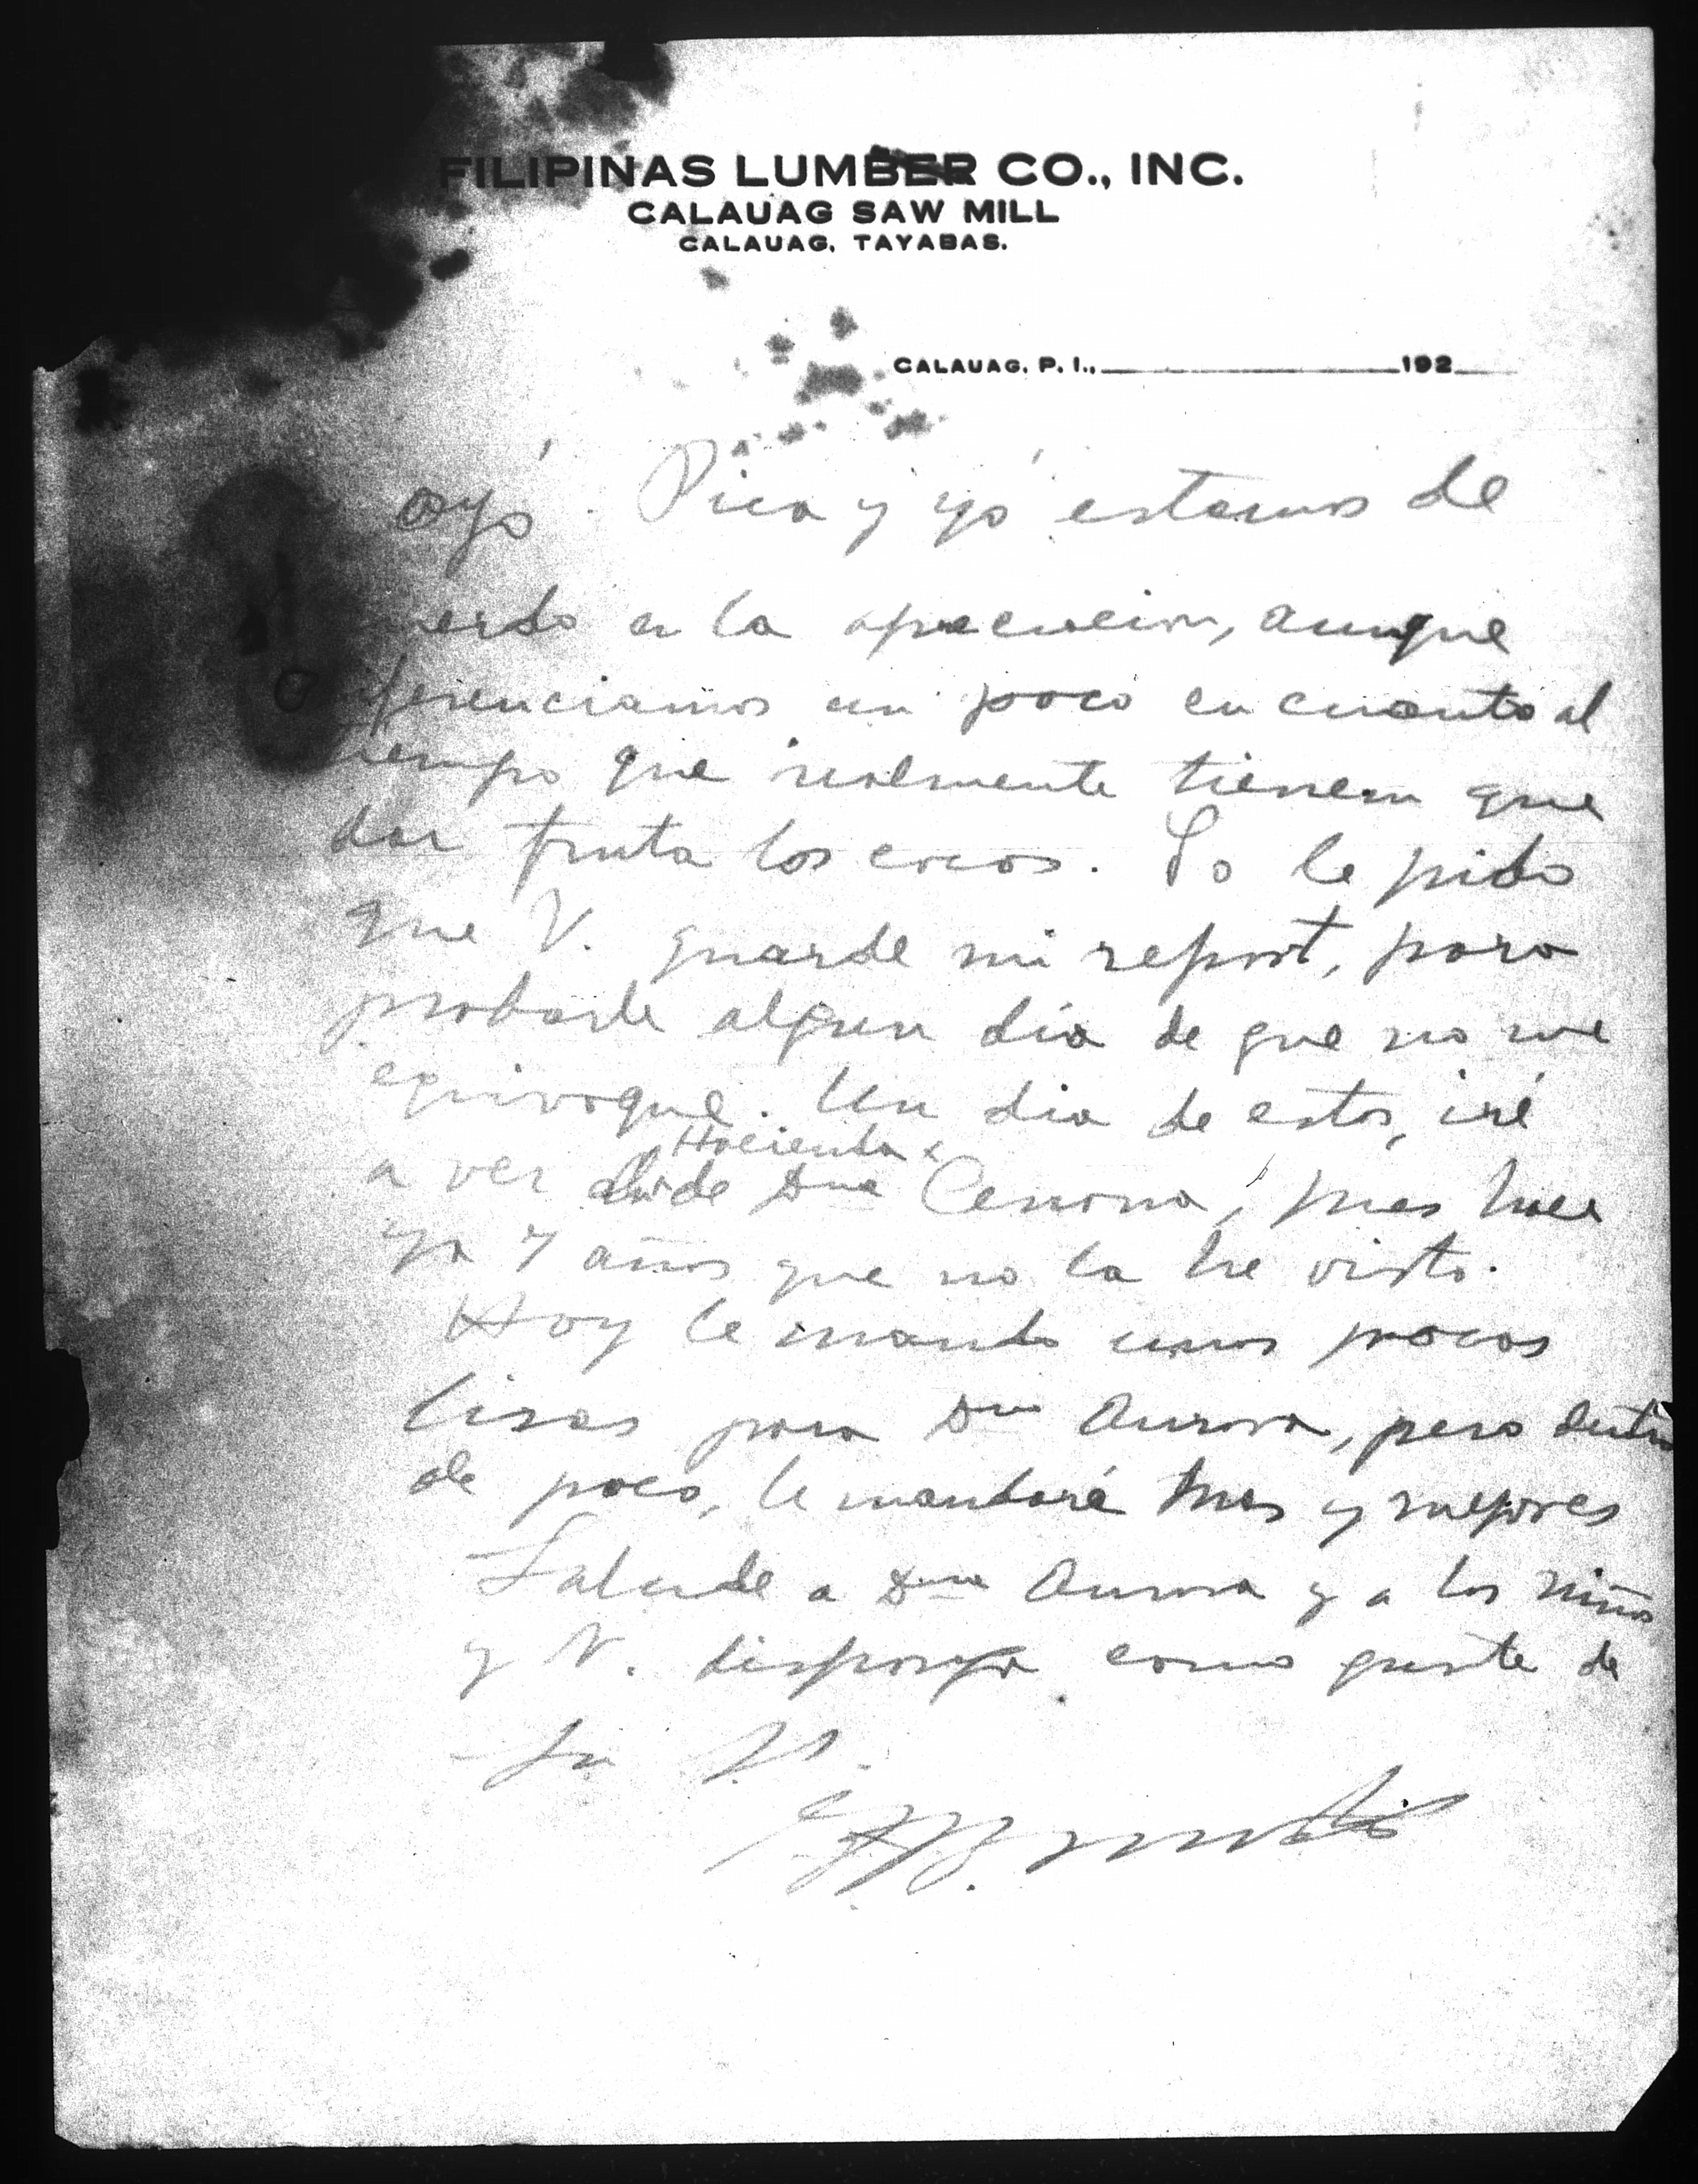 FILIPINAS LUMBER CO., INC.
CALAUAG SAW MILL
CALAUAG, TAYABAS.
CALAUAG, P. I., 192
Pica y yó estamos de
uerdo en la apreciacion, aunque
diferenciamos un poco en cuanto al
tiempo que realmente tienen que
dar fruta los cocos. Yo le pido
que V. guarde mi report, para
probarle algun dia de que no me
equivoque. Un dia de estos, iré
Hacienda
a ver de Dña Cenona, pues hace
ya 7 años que no la he visto.
Hoy le mando unos pocos
lisas para Dña Aurora, pero dentro
de poco, le mandaré mas y mejores
Salude a Dña Aurora y a los niños
y V. disponga como guste de
Su